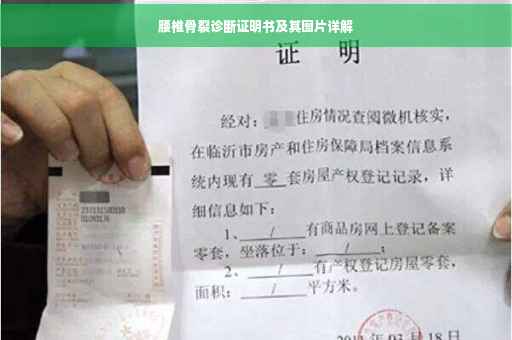 腰椎骨裂诊断证明书及其图片详解
证 明
经对：住房情况查阅微机核实，
在临沂市房产和住房保障局档案信息系
统内现有 零 套房屋产权登记记录，详
细信息如下：
1、 / 有商品房网上登记备案
零套，坐落位于： / ；
2、 / 有产权登记房屋零套，
面积： / 平方米。
年 03 月 18 日